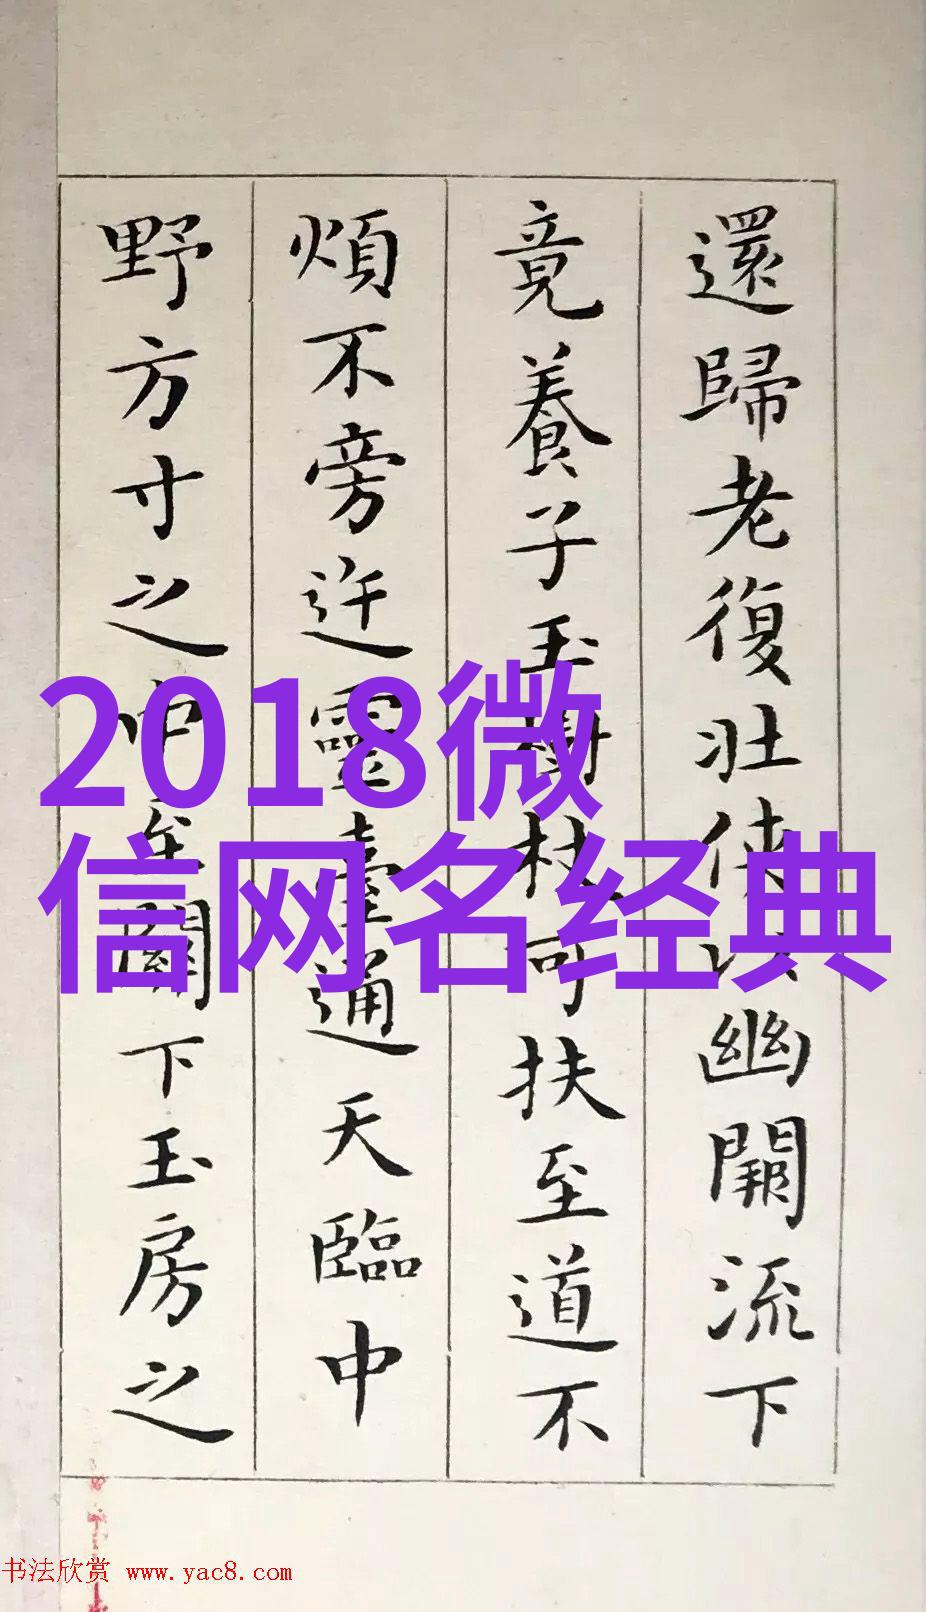 還歸老復壯俠以幽闕流下
竟養子玉樹杖可扶至道不
煩不旁迕靈臺通天臨中
野方寸之中至關下玉房之
2018微
信网名经典
书法欣赏 www.yac8.com